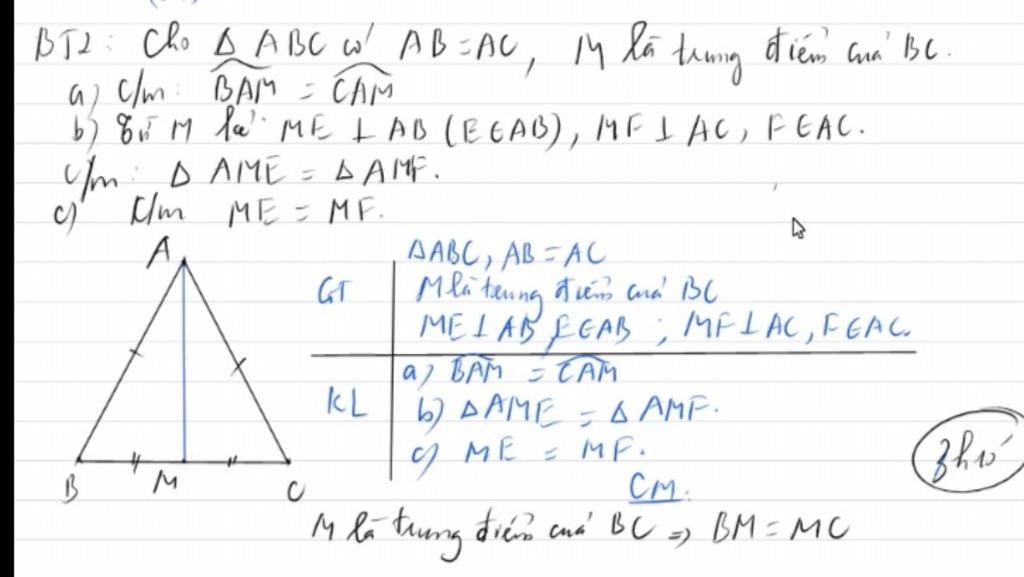 BT2: Cho Δ ABC có AB = AC, M là trung điểm của BC.
a) C/m: BAM = CAM
b) Từ M kẻ ME ⊥ AB (E ∈ AB), MF ⊥ AC, F ∈ AC.
C/m: Δ AME = Δ AMF.
c) C/m ME = MF.
A
B M C
GT
ΔABC, AB = AC
M là trung điểm của BC
ME ⊥ AB, E ∈ AB ; MF ⊥ AC, F ∈ AC.
KL
a) BAM = CAM
b) Δ AME = Δ AMF.
c) ME = MF.
CM:
M là trung điểm của BC => BM = MC